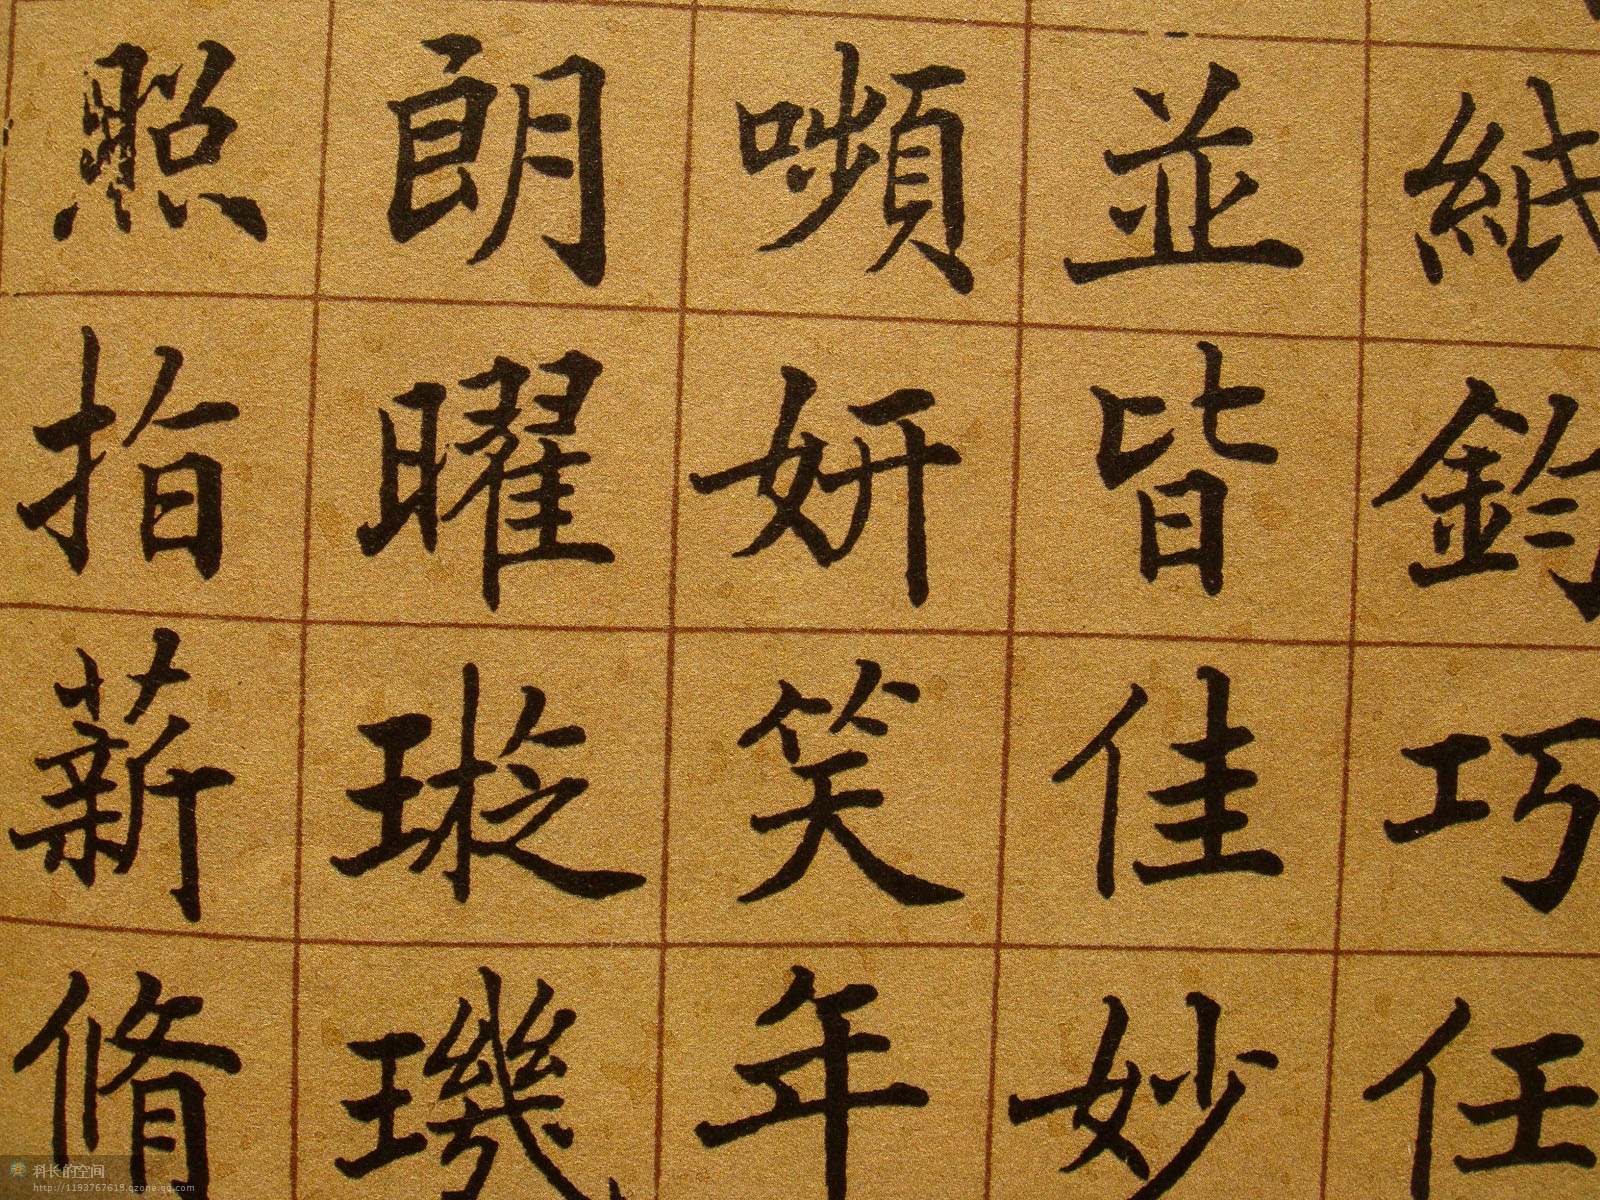 紙鈞巧任
並皆佳妙
嚬妍笑年
朗曜璇璣
照指薪脩
科长的空间
http://1193767618.qzone.qq.com